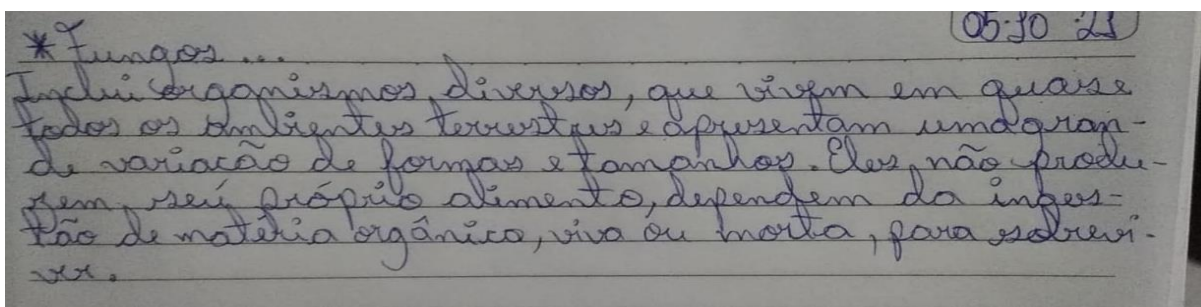 05.10.21
*Fungos...
Inclui organismos diversos, que vivem em quase
todos os ambientes terrestres e apresentam uma gran-
de variação de formas e tamanhos. Eles não produ-
zem seu próprio alimento, dependem da inges-
tão de matéria orgânica, viva ou morta, para sobrevi-
ver.